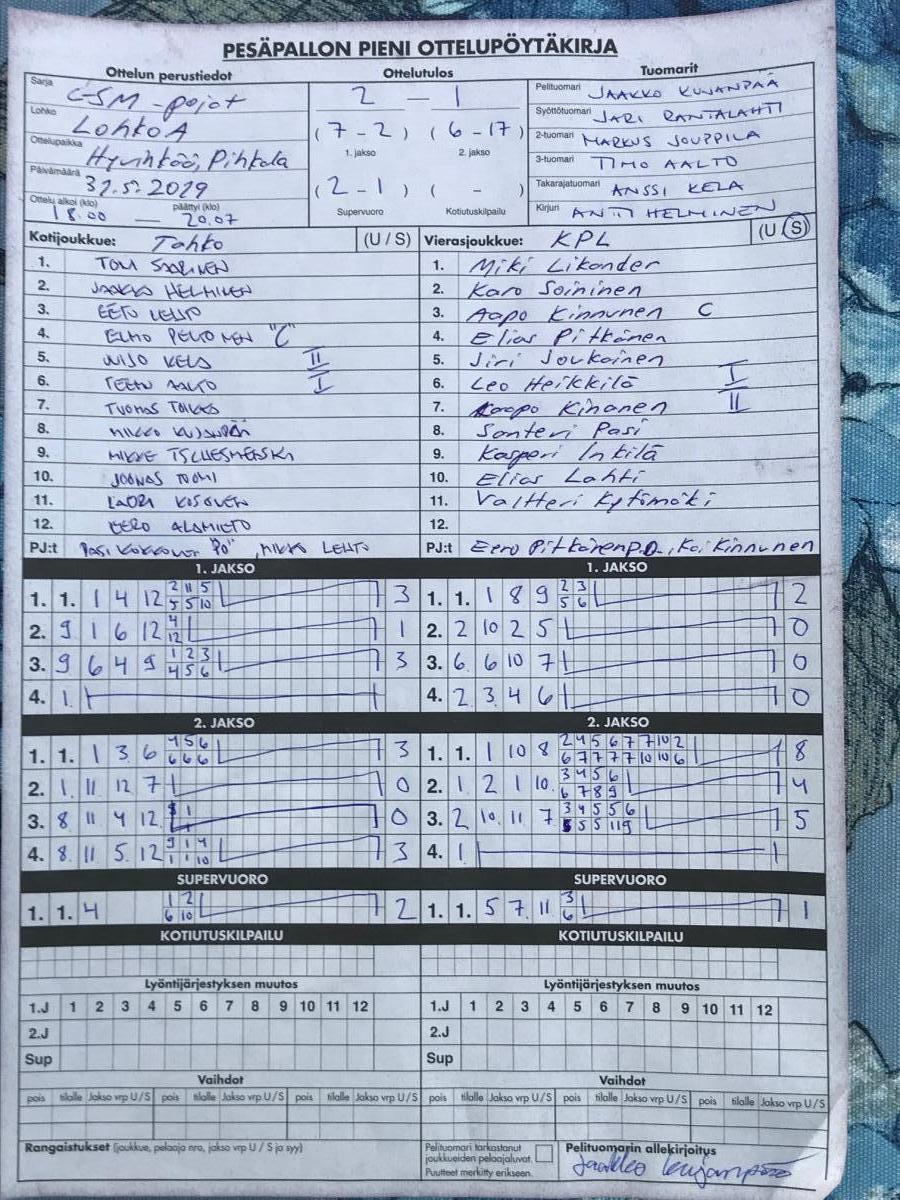 PESÄPALLON PIENI OTTELUPÖYTÄKIRJA
Ottelun perustiedot Ottelutulos Tuomarit
Sarja
Lohko Lohko A
Ottelupaikka Hyvinkää, Pihkala
Päivämäärä
Ottelu alkoi (klo) 18.00 — päättyi (klo) 20.07
2 — 1
(7-2) (6-17)
1. jakso 2. jakso
(2-1) ( - )
Supervuoro Kotiutuskilpailu
Pelituomari JAAKKO KUJANPÄÄ
Syöttötuomari JARI RANTALAHTI
2-tuomari MARKUS JOUPPILA
3-tuomari TIMO AALTO
Takarajatuomari ANSSI KELA
Kirjuri ANTTI HELMINEN
Kotijoukkue: Tahko (U / S) Vierasjoukkue: KPL (U / S)
1. TOMI SAARINEN
2. JAAKKO HELMINEN
3. EETU LEHTO
4. ELMO PELTONEN "C"
5. KELA II
6. TEEMU AALTO I
7. TUOMAS
8. MIKKO KUJANPÄÄ
9.
10. JOONAS TUOMI
11. LAURI KOSONEN
12. EERO ALAMIETO
PJ:t PASI "PÖ", MIKKO LEHTO
1. Miki Likander
2. Karo Soininen
3. Aapo Kinnunen C
4. Elias Pitkänen
5. Jiri Joukainen
6. Leo Heikkilä I
7. Kaapo Kinanen II
8. Santeri Pasi
9. Kasperi Inkilä
10. Elias Lahti
11. Valtteri Kytömäki
12.
PJ:t Eero Pitkänen P.Ö., Kai Kinnunen
1. JAKSO 1. JAKSO
1. 1. 1 4 12 2 11 5 3
5 5 10
2. 9 1 6 12 4 1
12
3. 9 6 4 9 1 2 3 3
4 5 6
4. 1
1. 1. 1 8 9 2 3 2
5 6
2. 2 10 2 5 0
3. 6 6 10 7 0
4. 2 3 4 6 0
2. JAKSO 2. JAKSO
1. 1. 1 3 6 4 5 6 3
6 6 6
2. 1 11 12 7 0
3. 8 11 4 12 0
4. 8 11 5 12 9 1 4 3
1 1 10
1. 1. 1 10 8 2 4 5 6 7 7 10 2 8
6 7 7 7 7 10 10 6
2. 1 2 1 10 3 4 5 6 4
6 7 8 9
3. 2 10 11 7 3 4 5 5 6 5
5 5 11 9
4. 1
SUPERVUORO SUPERVUORO
1. 1. 4 1 2 2
6 10
1. 1. 5 7 11 3 1
6
KOTIUTUSKILPAILU KOTIUTUSKILPAILU
Lyöntijärjestyksen muutos Lyöntijärjestyksen muutos
1.J 1 2 3 4 5 6 7 8 9 10 11 12 1.J 1 2 3 4 5 6 7 8 9 10 11 12
2.J 2.J
Sup Sup
Vaihdot Vaihdot
pois tilalle Jakso vrp U/S pois tilalle Jakso vrp U/S pois tilalle Jakso vrp U/S pois tilalle Jakso vrp U/S pois tilalle Jakso vrp U/S pois tilalle Jakso vrp U/S
Rangaistukset (joukkue, pelaaja nro, jakso vrp U / S ja syy)
Pelituomari tarkastanut
joukkueiden pelaajaluvat.
Puutteet merkitty erikseen.
Pelituomarin allekirjoitus
Jaakko Kujanpää